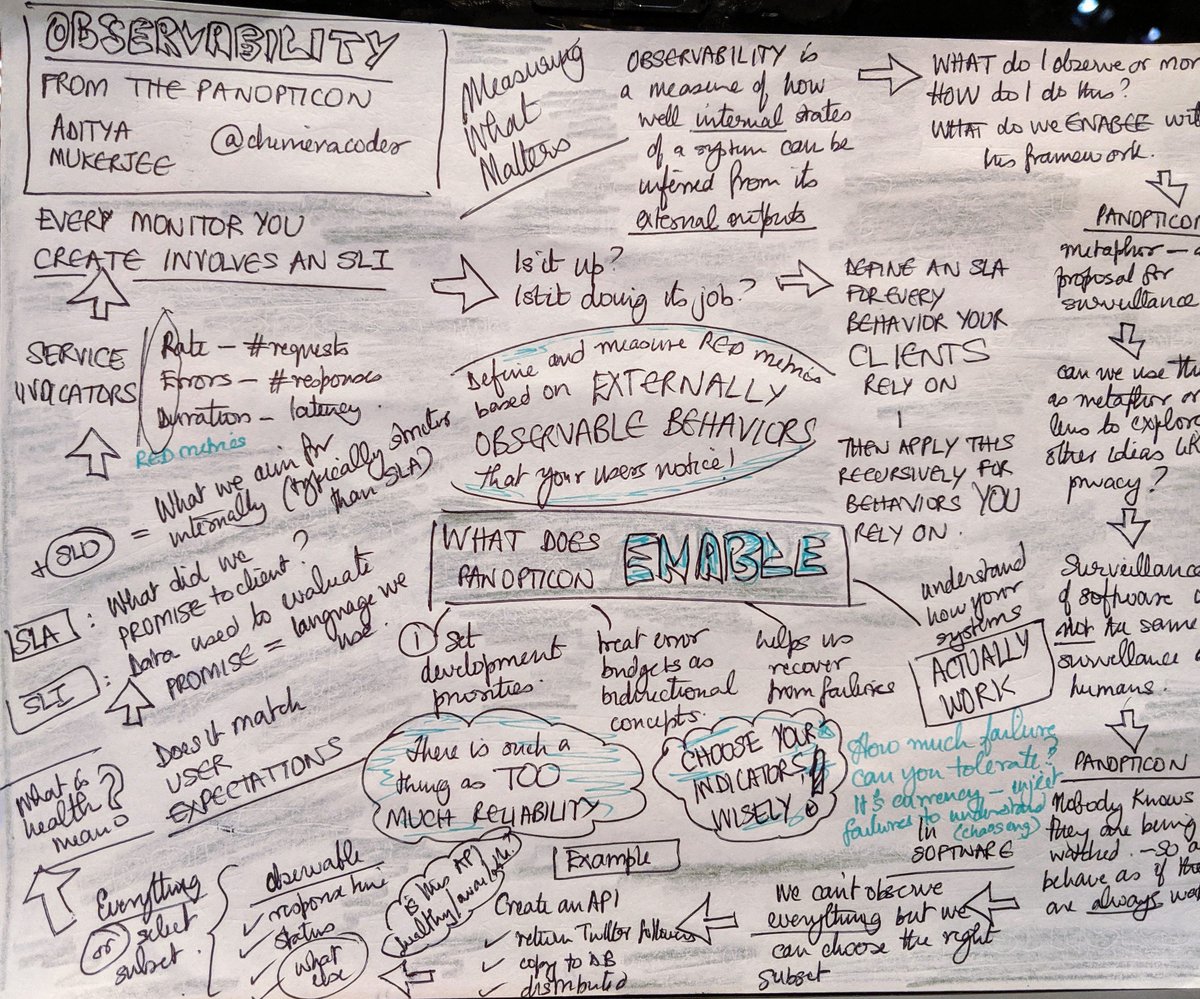 OBSERVABILITY
FROM THE PANOPTICON
ADITYA
MUKERJEE
@chimeracoder
Measuring
What
Matters
OBSERVABILITY is
a measure of how
well internal states
of a system can be
inferred from its
external outputs
WHAT do I observe or mon
HOW do I do this?
WHAT do we ENABLE wit
his framework.
PANOPTICON
metaphor – a
proposal for
surveillance
can we use thi
as metaphor or
lens to explor
other ideas lik
privacy?
Surveillance
of software i
not the same
surveillance o
humans.
PANOPTICON
Nobody knows
they are being
watched. – so a
behave as if the
are always wa
IN
SOFTWARE
We can't observe
everything but we
can choose the right
subset
Example
Create an API
✓ return Twitter followers
✓ copy to DB
✓ distributed
is this API
healthy/available?
observable
✓ response time
✓ status
✓ what
else
Everything
or select
subset.
What is
health
mean?
Does it match
USER
EXPECTATIONS
SLI : Data used to evaluate
PROMISE = language we
use.
SLA : What did we
PROMISE to client?
+ SLO = What we aim for
internally (typically stricter
than SLA)
SERVICE
INDICATORS
Rate – #requests
Errors – #responses
Duration – latency.
RED metrics
EVERY MONITOR YOU
CREATE INVOLVES AN SLI
Is it up?
Is it doing its job?
DEFINE AN SLA
FOR EVERY
BEHAVIOR YOUR
CLIENTS
RELY ON
THEN APPLY THIS
RECURSIVELY FOR
BEHAVIORS YOU
RELY ON.
Define and measure RED metrics
based on EXTERNALLY
OBSERVABLE BEHAVIORS
that your users notice!
WHAT DOES
PANOPTICON
ENABLE
1 Set
development
priorities.
treat error
budgets as
bidirectional
concepts.
helps us
recover
from failures
understand
how your
systems
ACTUALLY
WORK
There is such a
thing as TOO
MUCH RELIABILITY
CHOOSE YOUR
INDICATORS
WISELY!
How much failure
can you tolerate?
It's currency – inject
failures to understand
(chaos eng)